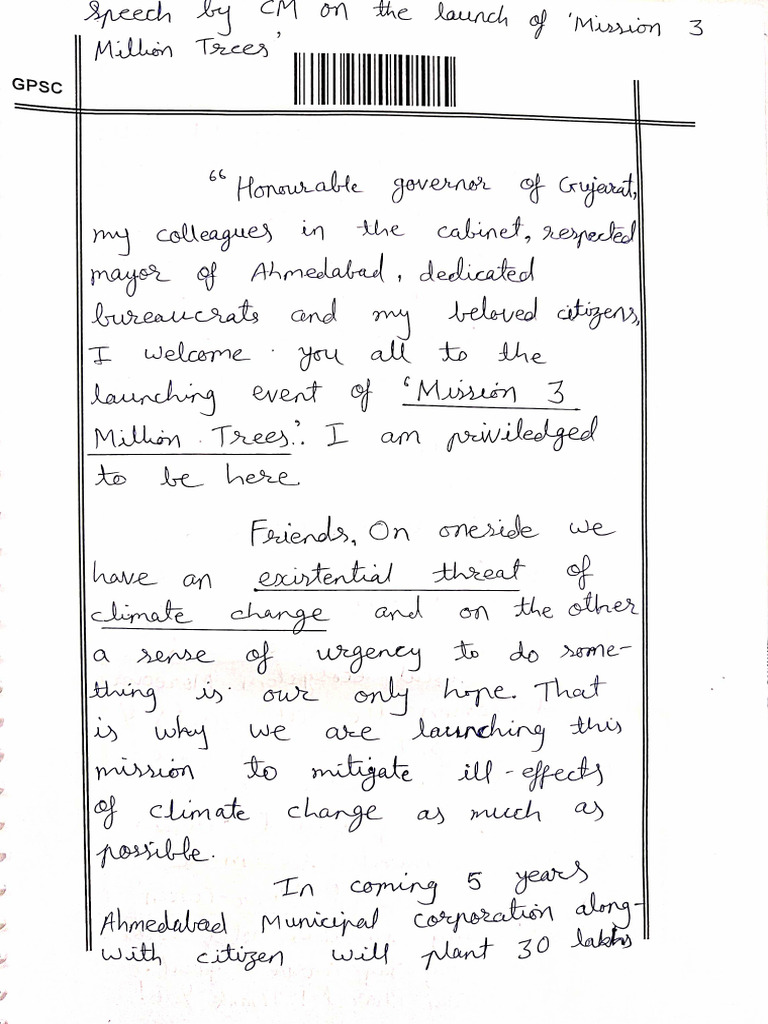 Speech by CM on the launch of 'Mission 3
Million Trees'
GPSC
"Honourable governor of Gujarat,
my colleagues in the cabinet, respected
mayor of Ahmedabad, dedicated
bureaucrats and my beloved citizens,
I welcome you all to the
launching event of 'Mission 3
Million Trees'. I am priviledged
to be here
Friends, On oneside we
have an existential threat of
climate change and on the other
a sense of urgency to do some-
thing is our only hope. That
is why we are launching this
mission to mitigate ill-effects
of climate change as much as
possible.
In coming 5 years
Ahmedabad Municipal corporation along-
with citizen will plant 30 lakhs